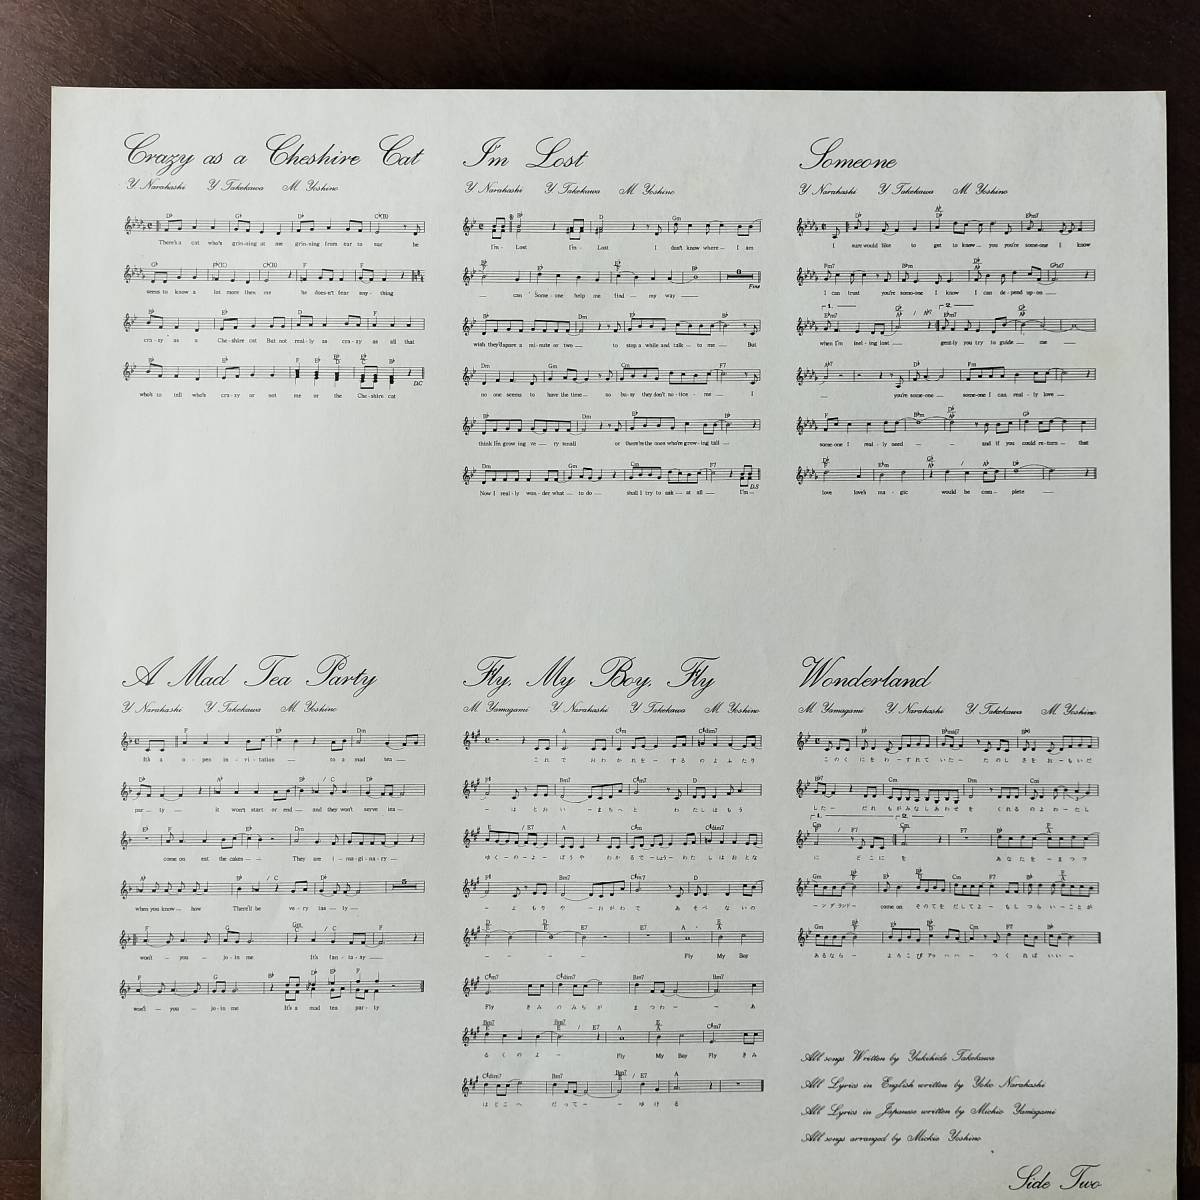 Crazy as a Cheshire Cat
Y. Narahashi Y. Takekawa M. Yoshino
There's a cat who's grin-ning at me grin-ning from ear to ear he
seems to know a lot more then me he does-n't fear any-thing
cra-zy as a Che-shire cat But not real-ly as cra-zy as all that
who's to tell who's cra-zy or not me or the Che-shire cat
D.C
I'm Lost
Y. Narahashi Y. Takekawa M. Yoshino
I'm- Lost I'm- Lost I don't know where- I am
can Some-one help me find- my way
Fine
wish they'd spare a mi-nute or two to stop a while and talk- to me But
no one seems to have the time- so bu-sy they don't no-tice- me I
think I'm grow-ing ve-ry small or there're the ones who're grow-ing tall
Now I real-ly won-der what- to do- shall I try to ask- at all I'm-
D.S
Someone
Y. Narahashi Y. Takekawa M. Yoshino
I sure would like to get to know- you you're some-one I know
I can trust you're some-one I know I can de-pend up-on
1. 2.
when I'm feel-ing lost gent-ly you try to guide me
you're some-one some-one I can real-ly love
some-one I real-ly need and if you could re-turn- that
love love's ma-gic would be com-plete
A Mad Tea Party
Y. Narahashi Y. Takekawa M. Yoshino
It's a o-pen in-vi-tation to a mad tea
par-ty it won't start or end- and they won't serve tea-
come on eat the cakes- They are i-ma-gi-na-ry
when you know- how There'll be ve-ry tas-ty
won't- you- jo-in me It's fan-ta-sy
won't- you- jo-in me It's a mad tea par-ty
Fly, My Boy, Fly
M. Yamagami Y. Narahashi Y. Takekawa M. Yoshino
これで おわかれをー するのよふたり
ーはとおい ーまちへと わたしはもう
ゆくーのーよー ぼうや わかるでーしょうーわた しはおとな
ーよもりやーおがわで あそべないの
Fly My Boy
Fly きみのみちが まつわーーあ
るくのよー Fly My Boy Fly きみ
はどこへ だってーーゆける
Wonderland
M. Yamagami Y. Narahashi Y. Takekawa M. Yoshino
このくにをわーすれていたー たのしさをおーもいだ
したー だれもがみなしあわせを くれるのよわーたし
1. 2.
に どこにを あなたをーまつワ
ーンダランドー come on そのてをだしてよー もしつらいーことが
あるならー よろこびアゥハハー つくればいいー
All songs Written by Yukihide Takekawa
All Lyrics in English written by Yoko Narahashi
All Lyrics in Japanese written by Michio Yamagami
All songs arranged by Mickie Yoshino
Side Two